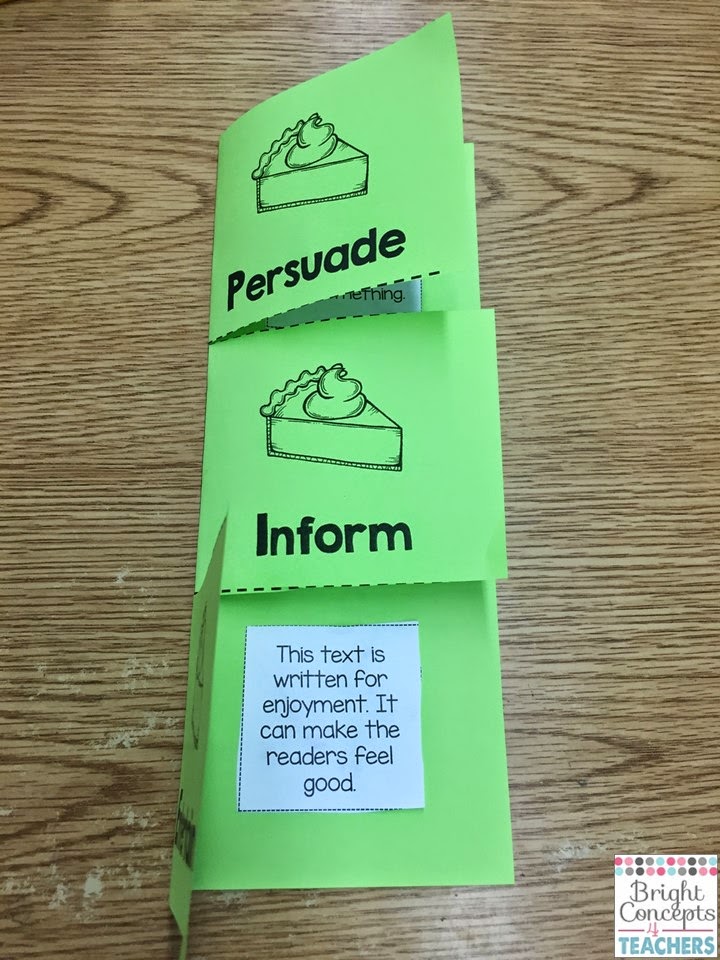 Persuade
mething.
Inform
This text is
written for
enjoyment. It
can make the
readers feel
good.
Bright
Concepts
4
TEACHERS